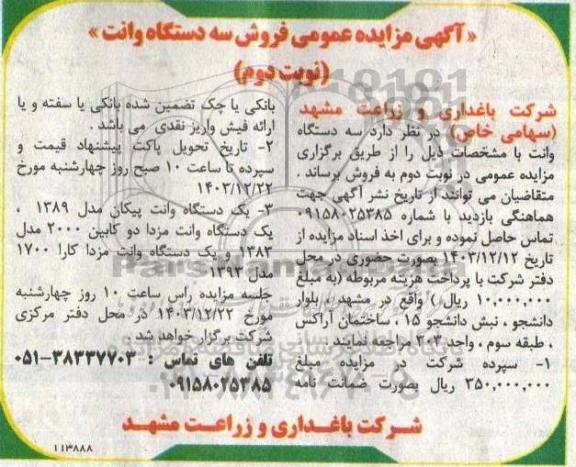 «آگهی مزایده عمومی فروش سه دستگاه وانت»
(نوبت دوم)
شرکت باغداری و زراعت مشهد
(سهامی خاص) در نظر دارد سه دستگاه
وانت با مشخصات ذیل را از طریق برگزاری
مزایده عمومی در نوبت دوم به فروش برساند .
متقاضیان می توانند از تاریخ نشر آگهی جهت
هماهنگی بازدید با شماره ۰۹۱۵۸۰۲۵۳۸۵
تماس حاصل نموده و برای اخذ اسناد مزایده از
تاریخ ۱۴۰۳/۱۲/۱۲ بصورت حضوری در محل
دفتر شرکت با پرداخت هزینه مربوطه (به مبلغ
۱۰,۰۰۰,۰۰۰ ریال) واقع در مشهد ، بلوار
دانشجو ، نبش دانشجو ۱۵ ، ساختمان آراکس
، طبقه سوم ، واحد ۳۰۲ مراجعه نمایند .
۱- سپرده شرکت در مزایده مبلغ
۳۵۰,۰۰۰,۰۰۰ ریال بصورت ضمانت نامه
بانکی یا چک تضمین شده بانکی یا سفته و یا
ارائه فیش واریز نقدی می باشد .
۲- تاریخ تحویل پاکت پیشنهاد قیمت و
سپرده تا ساعت ۱۰ صبح روز چهارشنبه مورخ
۱۴۰۳/۱۲/۲۲
۳- یک دستگاه وانت پیکان مدل ۱۳۸۹ ،
یک دستگاه وانت مزدا دو کابین ۲۰۰۰ مدل
۱۳۸۳ ، یک دستگاه وانت مزدا کارا ۱۷۰۰
مدل ۱۳۹۳
جلسه مزایده راس ساعت ۱۰ روز چهارشنبه
مورخ ۱۴۰۳/۱۲/۲۲ در محل دفتر مرکزی
شرکت برگزار خواهد شد .
تلفن های تماس : ۳۸۳۳۷۷۰۳-۰۵۱
۰۹۱۵۸۰۲۵۳۸۵
شرکت باغداری و زراعت مشهد
۱۱۳۸۸۸